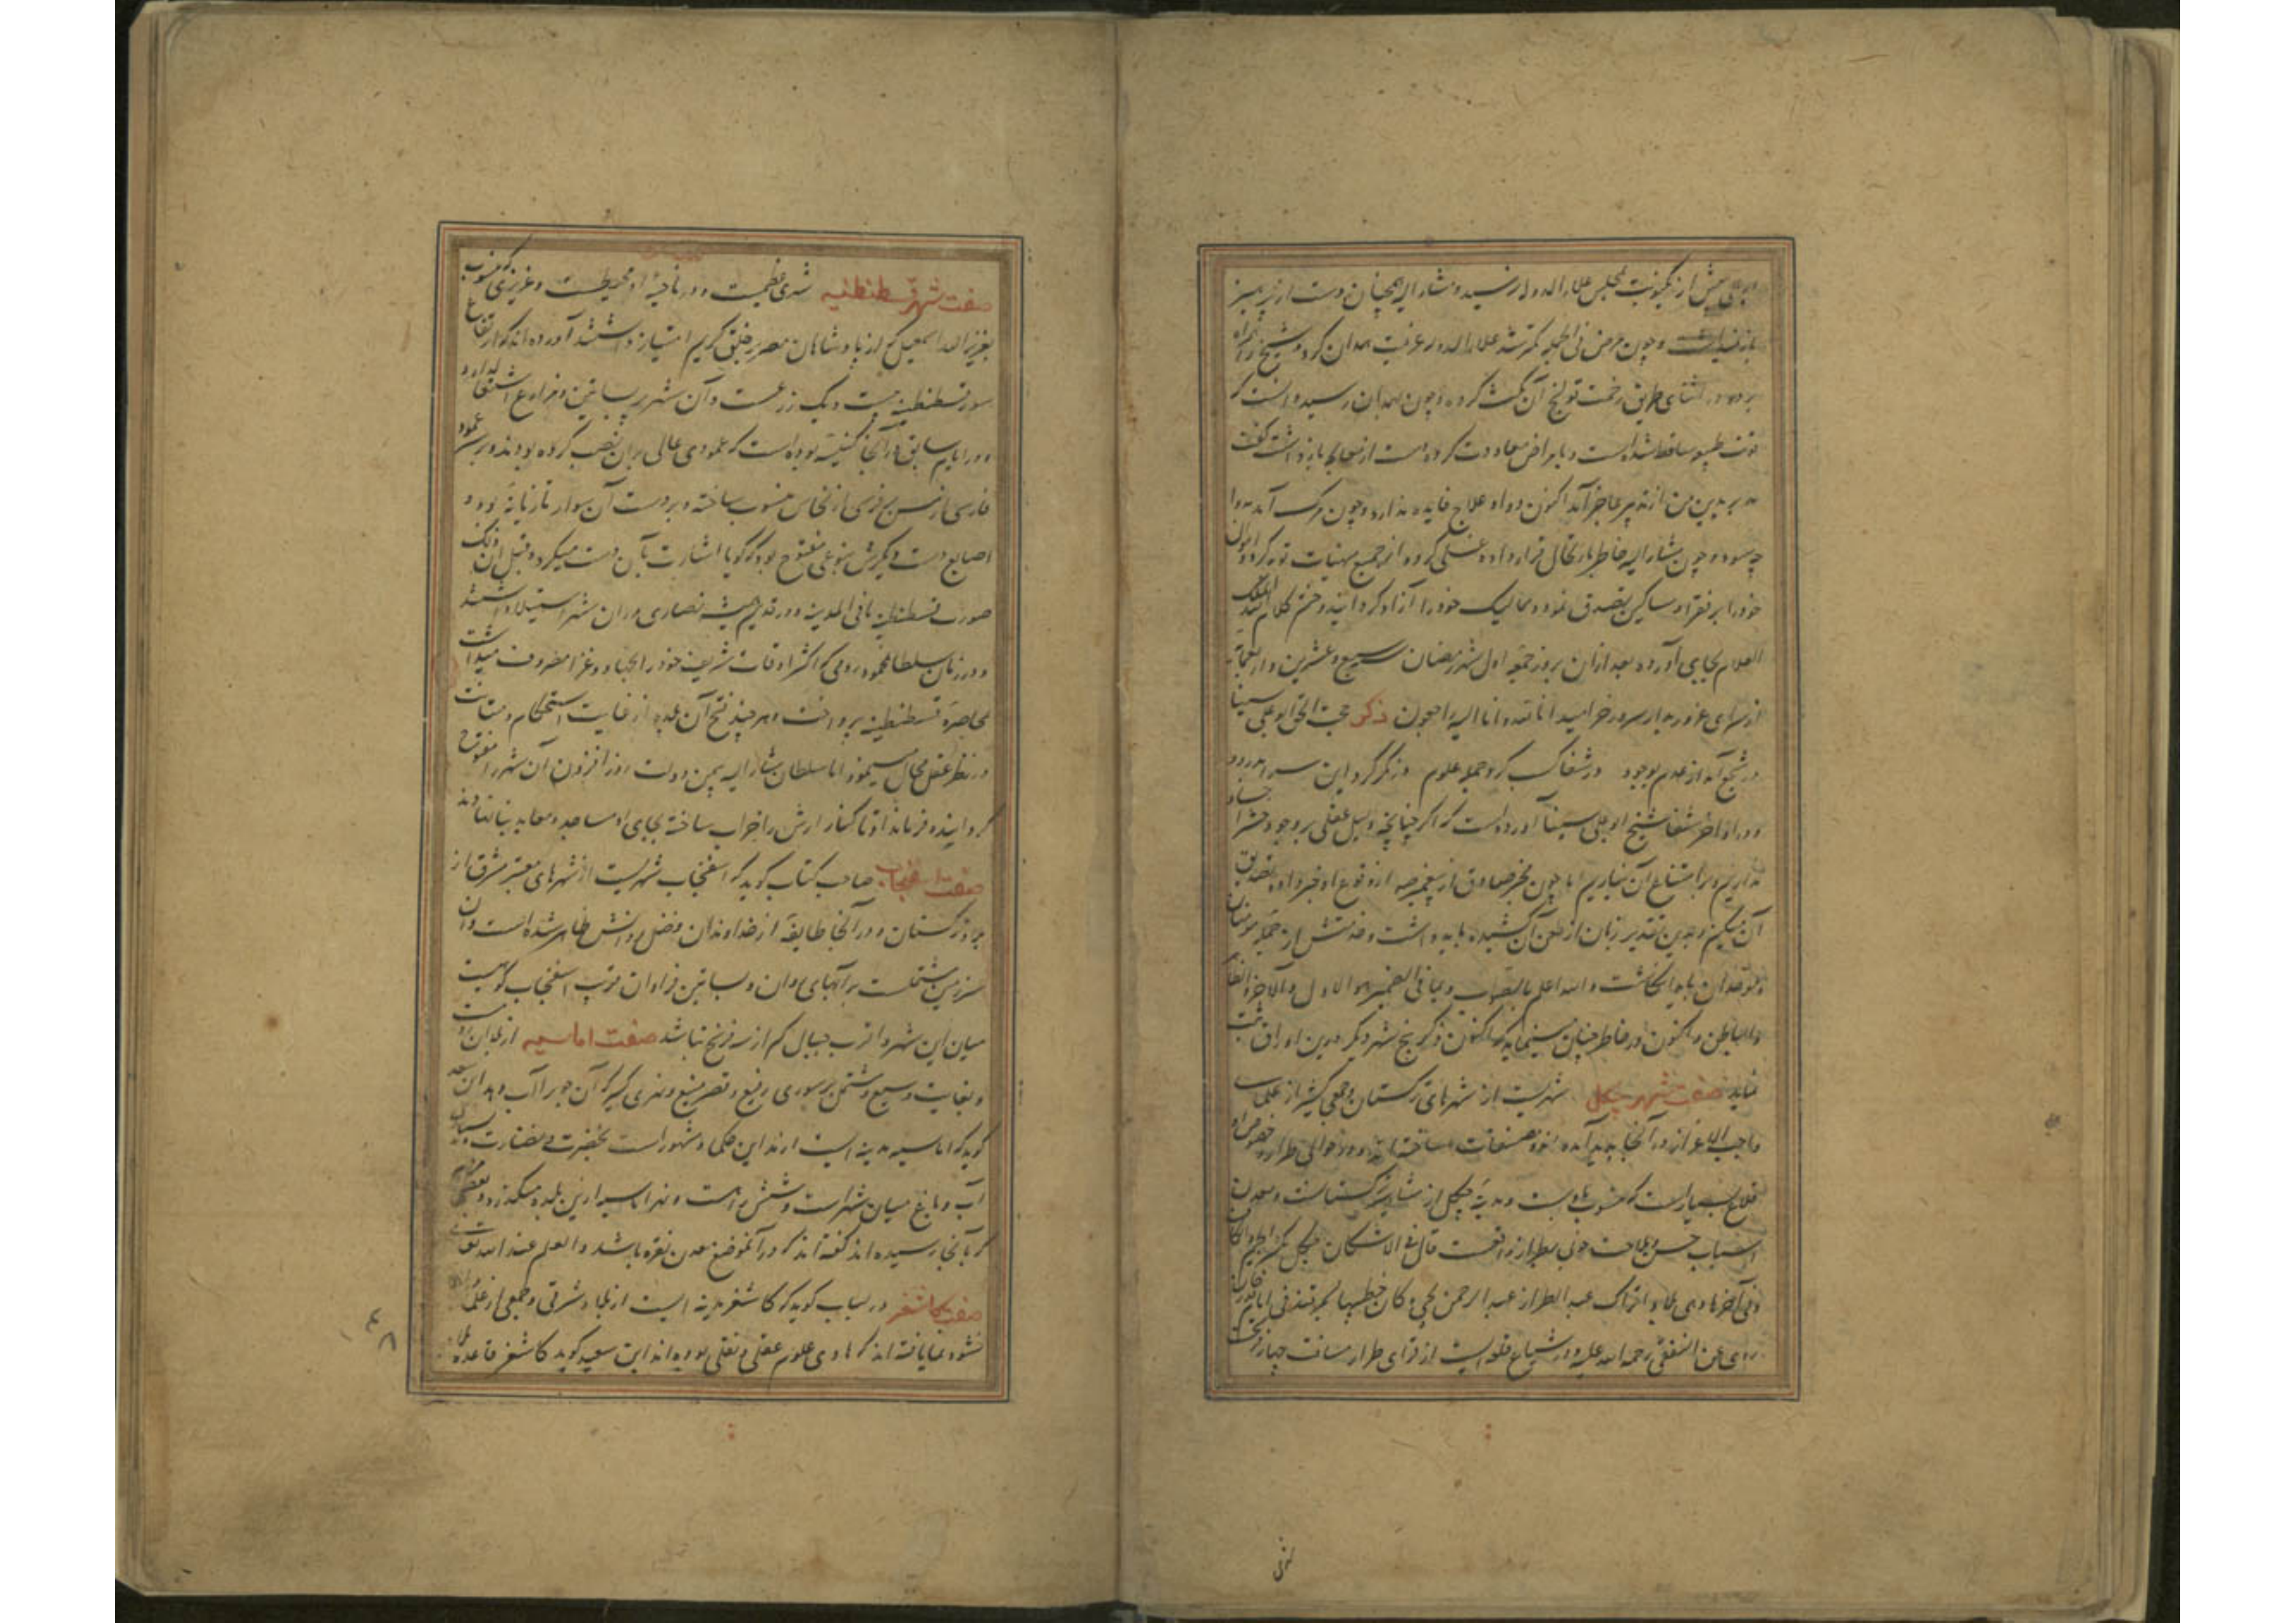 پیش ازین نوبت مجلس علاء الدوله رسید و مشار الیه همچنان دست از پرهیز
باز و چون مرض فی الجمله کمتر شد علاء الدوله عزیمت همدان کرد و شیخ را همراه
در اثنای طریق زحمت قولنج آن نکث کرده و چون بهمدان رسید دانست که
قوت ساقط شده است و بامراض معاودت کرده دست از معالجه باز داشت گفت
مدبر بدن من از تدبیر عاجز آمد اکنون دوا و علاج فایده ندارد و چون مرگ آمد مداوا
چه سود و چون مشار الیه خاطر بارتحال قرار داده غسلی کرد و از جمیع منهیات توبه کرد و اموال
خود را بر فقرا و مساکین تصدق نمود و ممالیک خود را آزاد گردانید و ختم کلام الملک
العلام بجای آورد و بعد ازان بروز جمعه اول شهر رمضان سبع و عشرین و اربعمایه
از سرای غرور بدار سرور خرامید انا لله و انا الیه راجعون ذکر حجت الحق ابو علی سینا
در شجع آمد از عدم بوجود در شصا کسب کرد جمله علوم در تکز کرد این سرا بدرود
و در اواخر شفا شیخ ابو علی سینا آورده است که اگر چنانچه دلیل عقلی بر وجود حشر اجساد
نداریم و بر امتناع آن نیز نداریم اما چون مخبر صادق از وقوع او خبر داده تصدیق
آن میکنیم و بدین تقدیر زبان از طعن آن کشیده باید داشت و از جمله مؤمنان
و معتقدان باید انگاشت و الله اعلم بالصواب و بما فی الضمیر هو الاول و الآخر و الظاهر
و الباطن و اکنون در خاطر چنان مینماید که اکنون ذکر پنج شهر دیگر درین اوراق ثبت
نماید صفت شهر چکل شهریست از شهرهای ترکستان و جمعی کثیر از علمای
واجب الاعزاز در آنجا پدید آمده اند و مصنفات ساخته اند و در حوالی طراز
قلاع بسیار است که منسوب باوست و مدینه چکل از مشاهیر ترکستانست و معدن
اسباب حسن و ملاحت خوبی بطراز واقعست قال فی الاشکال چکل بکسر الجیم و الکاف
و فی آخرها من بلاد اتراک عبد الرحمن بن یحیی کان خطیبها بسمرقند فی ایام
روی عن النسفی رحمه الله علیه و در قلعه ایست از قرای طراز مسافت چهار فرسخ
لزنی
صفت شهر قسطنطنیه شهری عظیمست و در ناحیه او محیطست و عزیزی که منسوب
بعزیز الله اسمعیل که از پادشاهان مصر بخلق کریم امتیاز داشتند آورده اند که ارتفاع
سور قسطنطنیه بیست و یک زرعست و آن شهر بر بساتین و مزارع اشتمال دارد و
در ایام سابق در آنجا کنیسه بوده است که عمودی عالی بران نصب کرده بودند و بر سر عمود
فارسی از مس بر فرسی از نحاس منسوب ساخته و بر دست آن سوار تازیانه بود و
اصابع دست دیگرش بنوعی مفتوح بود که گویا اشارت بآن دست میکرد و قیل ان ذلک
صورت قسطنطنیه بانی المدینه و در قدیم همیشه نصاری بران شهر استیلا داشتند
و در زمان سلطان محمود رومی که اکثر اوقات شریف خود را بجهاد و غزا مصروف میداشت
بمحاصره قسطنطنیه پرداخت و هر چند فتح آن بلده از غایت استحکام و متانت
در نظر عقل محال مینمود اما سلطان مشار الیه بیمن دولت روز افزون آن شهر را مفتوح
گردانیده فرمان داد تا کنایس را خراب ساخته بجای او مساجد و معابد بنا نهادند
صفت اسفنجاب صاحب کتاب گوید که اسفنجاب شهریست از شهرهای معتبر مشرق از
بلاد ترکستان و در آنجا طایفه از خداوندان فضل و دانش ظاهر شده است و آن
سرزمین مشتملست بر آبهای روان و بساتین فراوان قریب اسفنجاب کوهیست
میان این شهر و اقرب جبال کم از سه فرسخ نباشد صفت اماسیه از بلدان روم
و بغایت وسیع و مشتمل بر سوری رفیع و قصر منیع و نهری کبیر که آن جو را آب دهد ابن سعد
گوید که اماسیه مدینه ایست از مداین حکما و مشهور است بخضرت و نضارت و بسیاری
آب و باغ میان شهر است و شش راهست و نهر اماسیه ازین بلده میگذرد و بعضی
که بآنجا رسیده اند گفته اند که در آنموضع معدن نقره باشد و العلم عند الله تعالی
صفت کاشغر در لباب گوید که کاشغر مدینه ایست از بلاد شرقی و جمعی از علما
نشو و نما یافته اند که حاوی علوم عقلی و نقلی بوده اند ابن سعید گوید کاشغر قاعده
۴۸